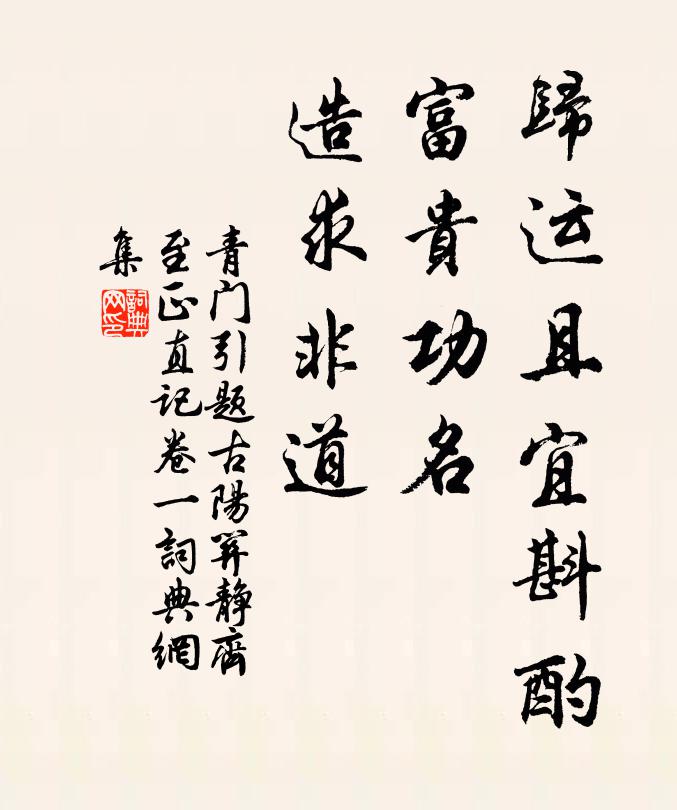 歸运且宜斟酌
富貴功名
造求非道
青门引題古陽関静齊
至正直记卷一詞典網
集
詞典网印